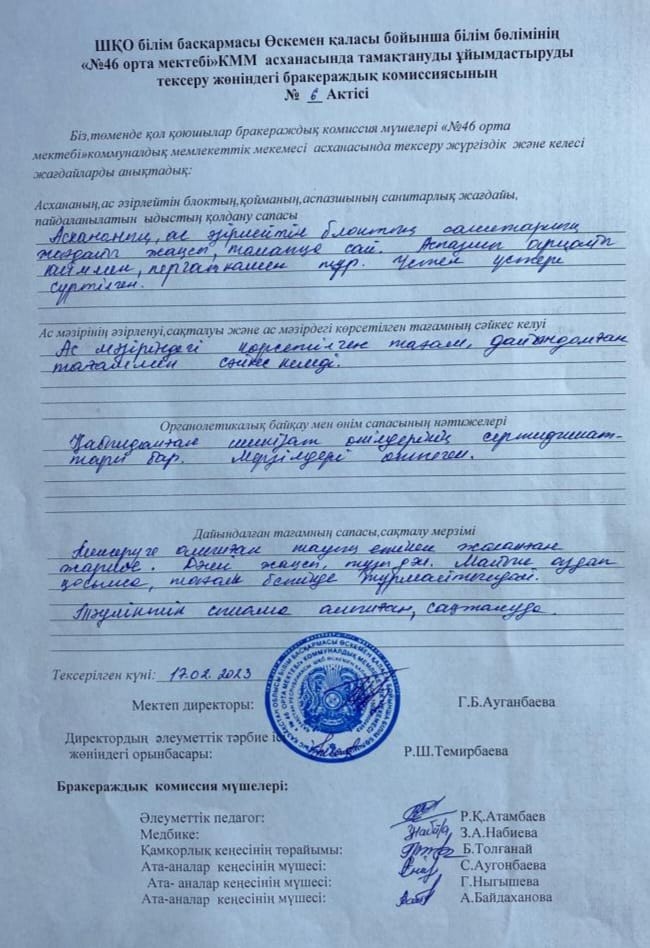 ШҚО білім басқармасы Өскемен қаласы бойынша білім бөлімінің
«№46 орта мектебі»КММ асханасында тамақтануды ұйымдастыруды
тексеру жөніндегі бракераждық комиссиясының
№ 6 Актісі
Біз,төменде қол қоюшылар бракераждық комиссия мүшелері «№46 орта
мектебі»коммуналдық мемлекеттік мекемесі асханасында тексеру жүргіздік және келесі
жағдайларды анықтадық:
Асхананың,ас әзірлейтін блоктың,қойманың,аспазшының санитарлық жағдайы,
пайдаланылатын ыдыстың қолдану сапасы
Асхананың, ас әзірлейтін блоктың санитарлық
жағдайы жақсы, талапқа сай. Аспазшы арнайы
киіммен, перчаткамен тұр. Үстел үстері
сүртілген.
Ас мәзірінің әзірленуі,сақталуы және ас мәзірдегі көрсетілген тағамның сәйкес келуі
Ас мәзіріндегі көрсетілген тағам, дайындалған
тағаммен сәйкес келеді.
Органолетикалық байқау мен өнім сапасының нәтижелері
Қабылданған шикізат өнімдерінің сертификат-
тары бар. Мерзімдері өтпеген.
Дайындалған тағамның сапасы,сақталу мерзімі
Тексеруге алынған тауық етінен жасалған
жаркое. Дәмі жақсы, тұзы
қосылса, тағам
Тәуліктік алынған, сақталуда.
Тексерілген күні: 17.02.2023
Мектеп директоры: Г.Б.Ауганбаева
Директордың әлеуметтік тәрбие іс
жөніндегі орынбасары: Р.Ш.Темирбаева
Бракераждық комиссия мүшелері:
Әлеуметтік педагог: Р.Қ.Атамбаев
Медбике: З.А.Набиева
Қамқорлық кеңесінің төрайымы: Б.Толғанай
Ата-аналар кеңесінің мүшесі: С.Аугонбаева
Ата- аналар кеңесінің мүшесі: Г.Ныгышева
Ата-аналар кеңесінің мүшесі: А.Байдаханова